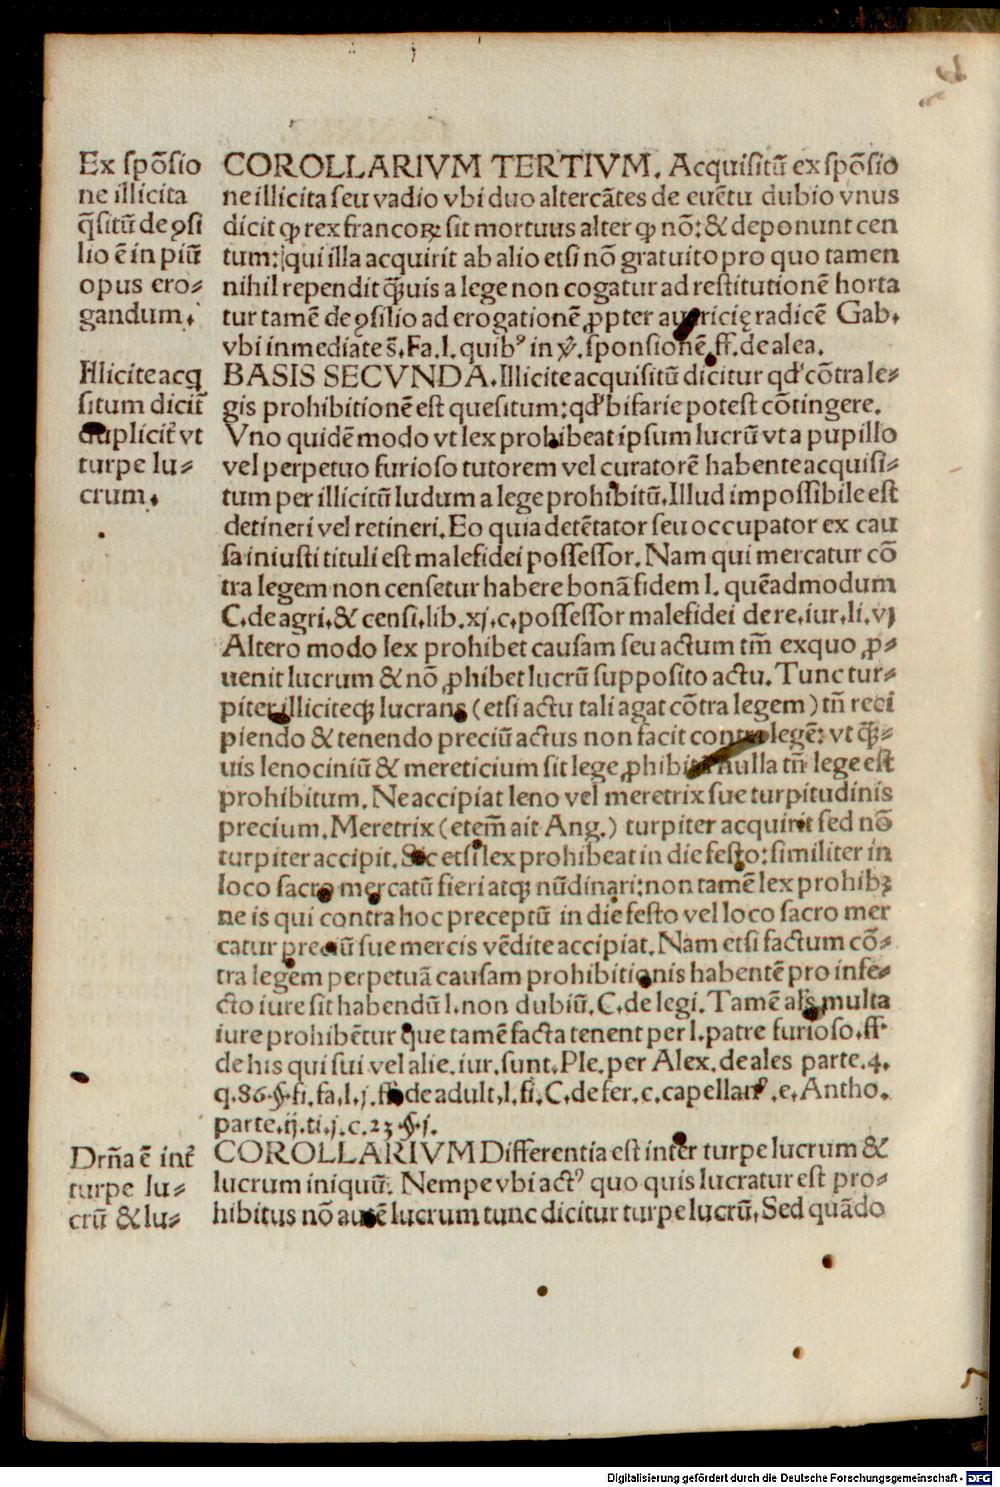 Ex spōsio
ne illicita
q̄situ̅ de ꝯsi
lio ē in piu᷒
opus ero⸗
gandum.
COROLLARIVM TERTIVM. Acquisitū ex spōsio
ne illicita seu vadio vbi duo altercātes de euētu dubio vnus
dicit ꝙ rex francoꝝ sit mortuus alter ꝙ nō: & deponunt cen
tum: qui illa acquirit ab alio etsi nō gratuito pro quo tamen
nihil rependit q̄uis a lege non cogatur ad restitutionē horta
tur tamē de ꝯsilio ad erogationē ꝓpter auaricię radicē Gab.
vbi inmediate s̄. Fa. l. quibꝰ in ꝟ. sponsionē. ff. de alea.
Illicite acq
situm dicit᷒
duplicit᷒ vt
turpe lu⸗
crum.
BASIS SECVNDA. Illicite acquisitū dicitur qd' cōtra le⸗
gis prohibitionē est quesitum: qd' bifarie potest cōtingere.
Vno quidē modo vt lex prohibeat ipsum lucrū vt a pupillo
vel perpetuo furioso tutorem vel curatorē habente acquisi⸗
tum per illicitū ludum a lege prohibitū. Illud impossibile est
detineri vel retineri. Eo quia detētator seu occupator ex cau
sa iniusti tituli est malefidei possessor. Nam qui mercatur cō
tra legem non censetur habere bonā fidem l. quēadmodum
C. de agri. & censi. lib. xj. c. possessor malefidei de re. iur. li. vj
Altero modo lex prohibet causam seu actum tm̄ ex quo ꝓ⸗
uenit lucrum & nō ꝓhibet lucrū supposito actu. Tunc tur⸗
piter illiciteqꝫ lucrans (etsi actu tali agat cōtra legem) tn̄ reci
piendo & tenendo preciū actus non facit contra legē: vt q̄⸗
uis lenociniū & mereticium sit lege ꝓhibitū nulla tn̄ lege est
prohibitum. Ne accipiat leno vel meretrix sue turpitudinis
precium. Meretrix (etem̄ ait Ang.) turpiter acquirit sed nō
turpiter accipit. Sic etsi lex prohibeat in die festo: similiter in
loco sacro mercatū fieri atqꝫ nūdinari: non tamē lex prohibꝫ
ne is qui contra hoc preceptū in die festo vel loco sacro mer
catur preciū sue mercis vēdite accipiat. Nam etsi factum cō⸗
tra legem perpetuā causam prohibitionis habentē pro infe⸗
cto iure sit habendū l. non dubiū. C. de legi. Tamē als̄ multa
iure prohibētur que tamē facta tenent per l. patre furioso. ff
de his qui sui vel alie. iur. sunt. Ple. per Alex. de ales parte. 4.
q. 86. §. fi. fa. l. j. ff de adult. l. fi. C. de fer. c. capellanꝰ. e. Antho.
parte. ij. ti. j. c. 23 §. j.
Drn̄a ē int᷒
turpe lu⸗
crū & lu⸗
COROLLARIVM Differentia est inter turpe lucrum &
lucrum iniquū. Nempe vbi actꝰ quo quis lucratur est pro⸗
hibitus nō autē lucrum tunc dicitur turpe lucrū. Sed quādo
Digitalisierung gefördert durch die Deutsche Forschungsgemeinschaft - DFG